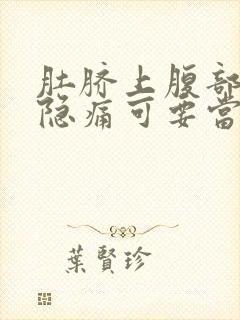 肚脐上腹部
隐痛可要當
葉賢珍